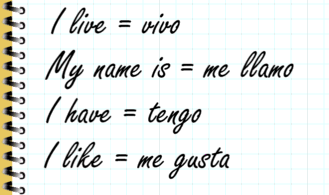 I live = vivo
My name is = me llamo
I have = tengo
I like = me gusta